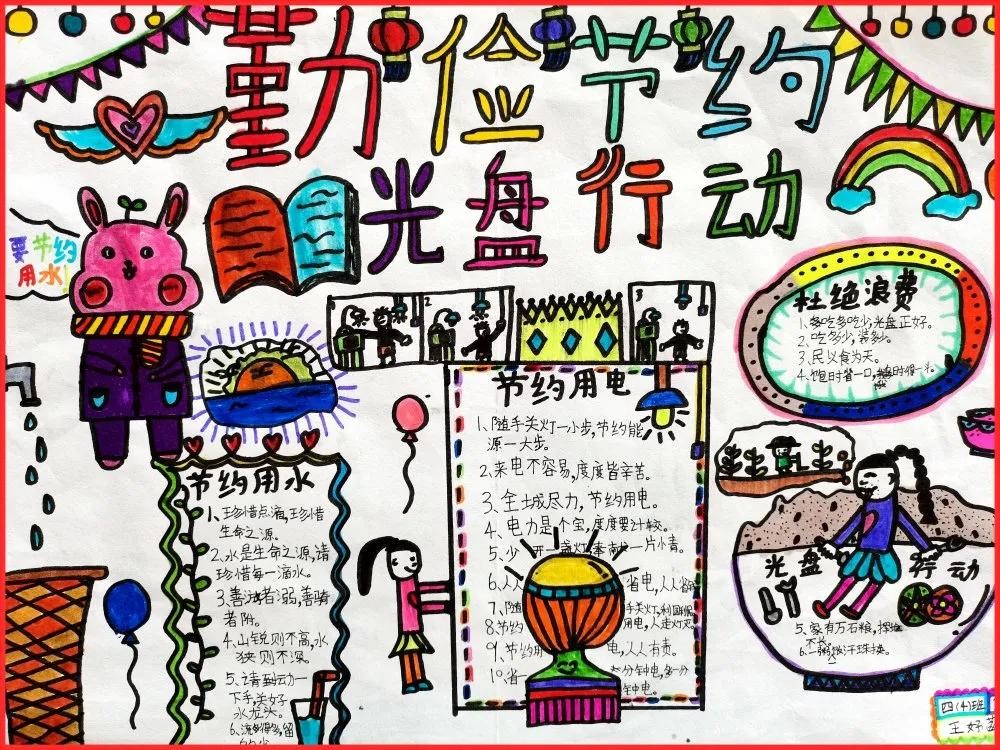 勤俭节约
光盘行动
要节约
用水
杜绝浪费
1、多吃多吃少,光盘正好。
2、吃多少,装多少。
3、民以食为天。
4、饱时省一口,
节约用电
1、随手关灯一小步,节约能
源一大步。
2、来电不容易,度度皆辛苦。
3、全城尽力,节约用电。
4、电力是个宝,度度要计较。
5、少开一盏灯,奉献一片情。
6、人人省电,人人省
7、随手关灯,利国
8、节约用电,人走灯灭
9、节约用电,人人有责。
10、省一
分钟电。
节约用水
1、珍惜点滴,珍惜
生命之源。
2、水是生命之源,请
珍惜每一滴水。
3、善泳者溺,善骑
者附。
4、山锐则不高,水
狭则不深。
5、请动一
下手,关好
水龙头。
光盘行动
5、家有万石粮,
四(4)班
王妤